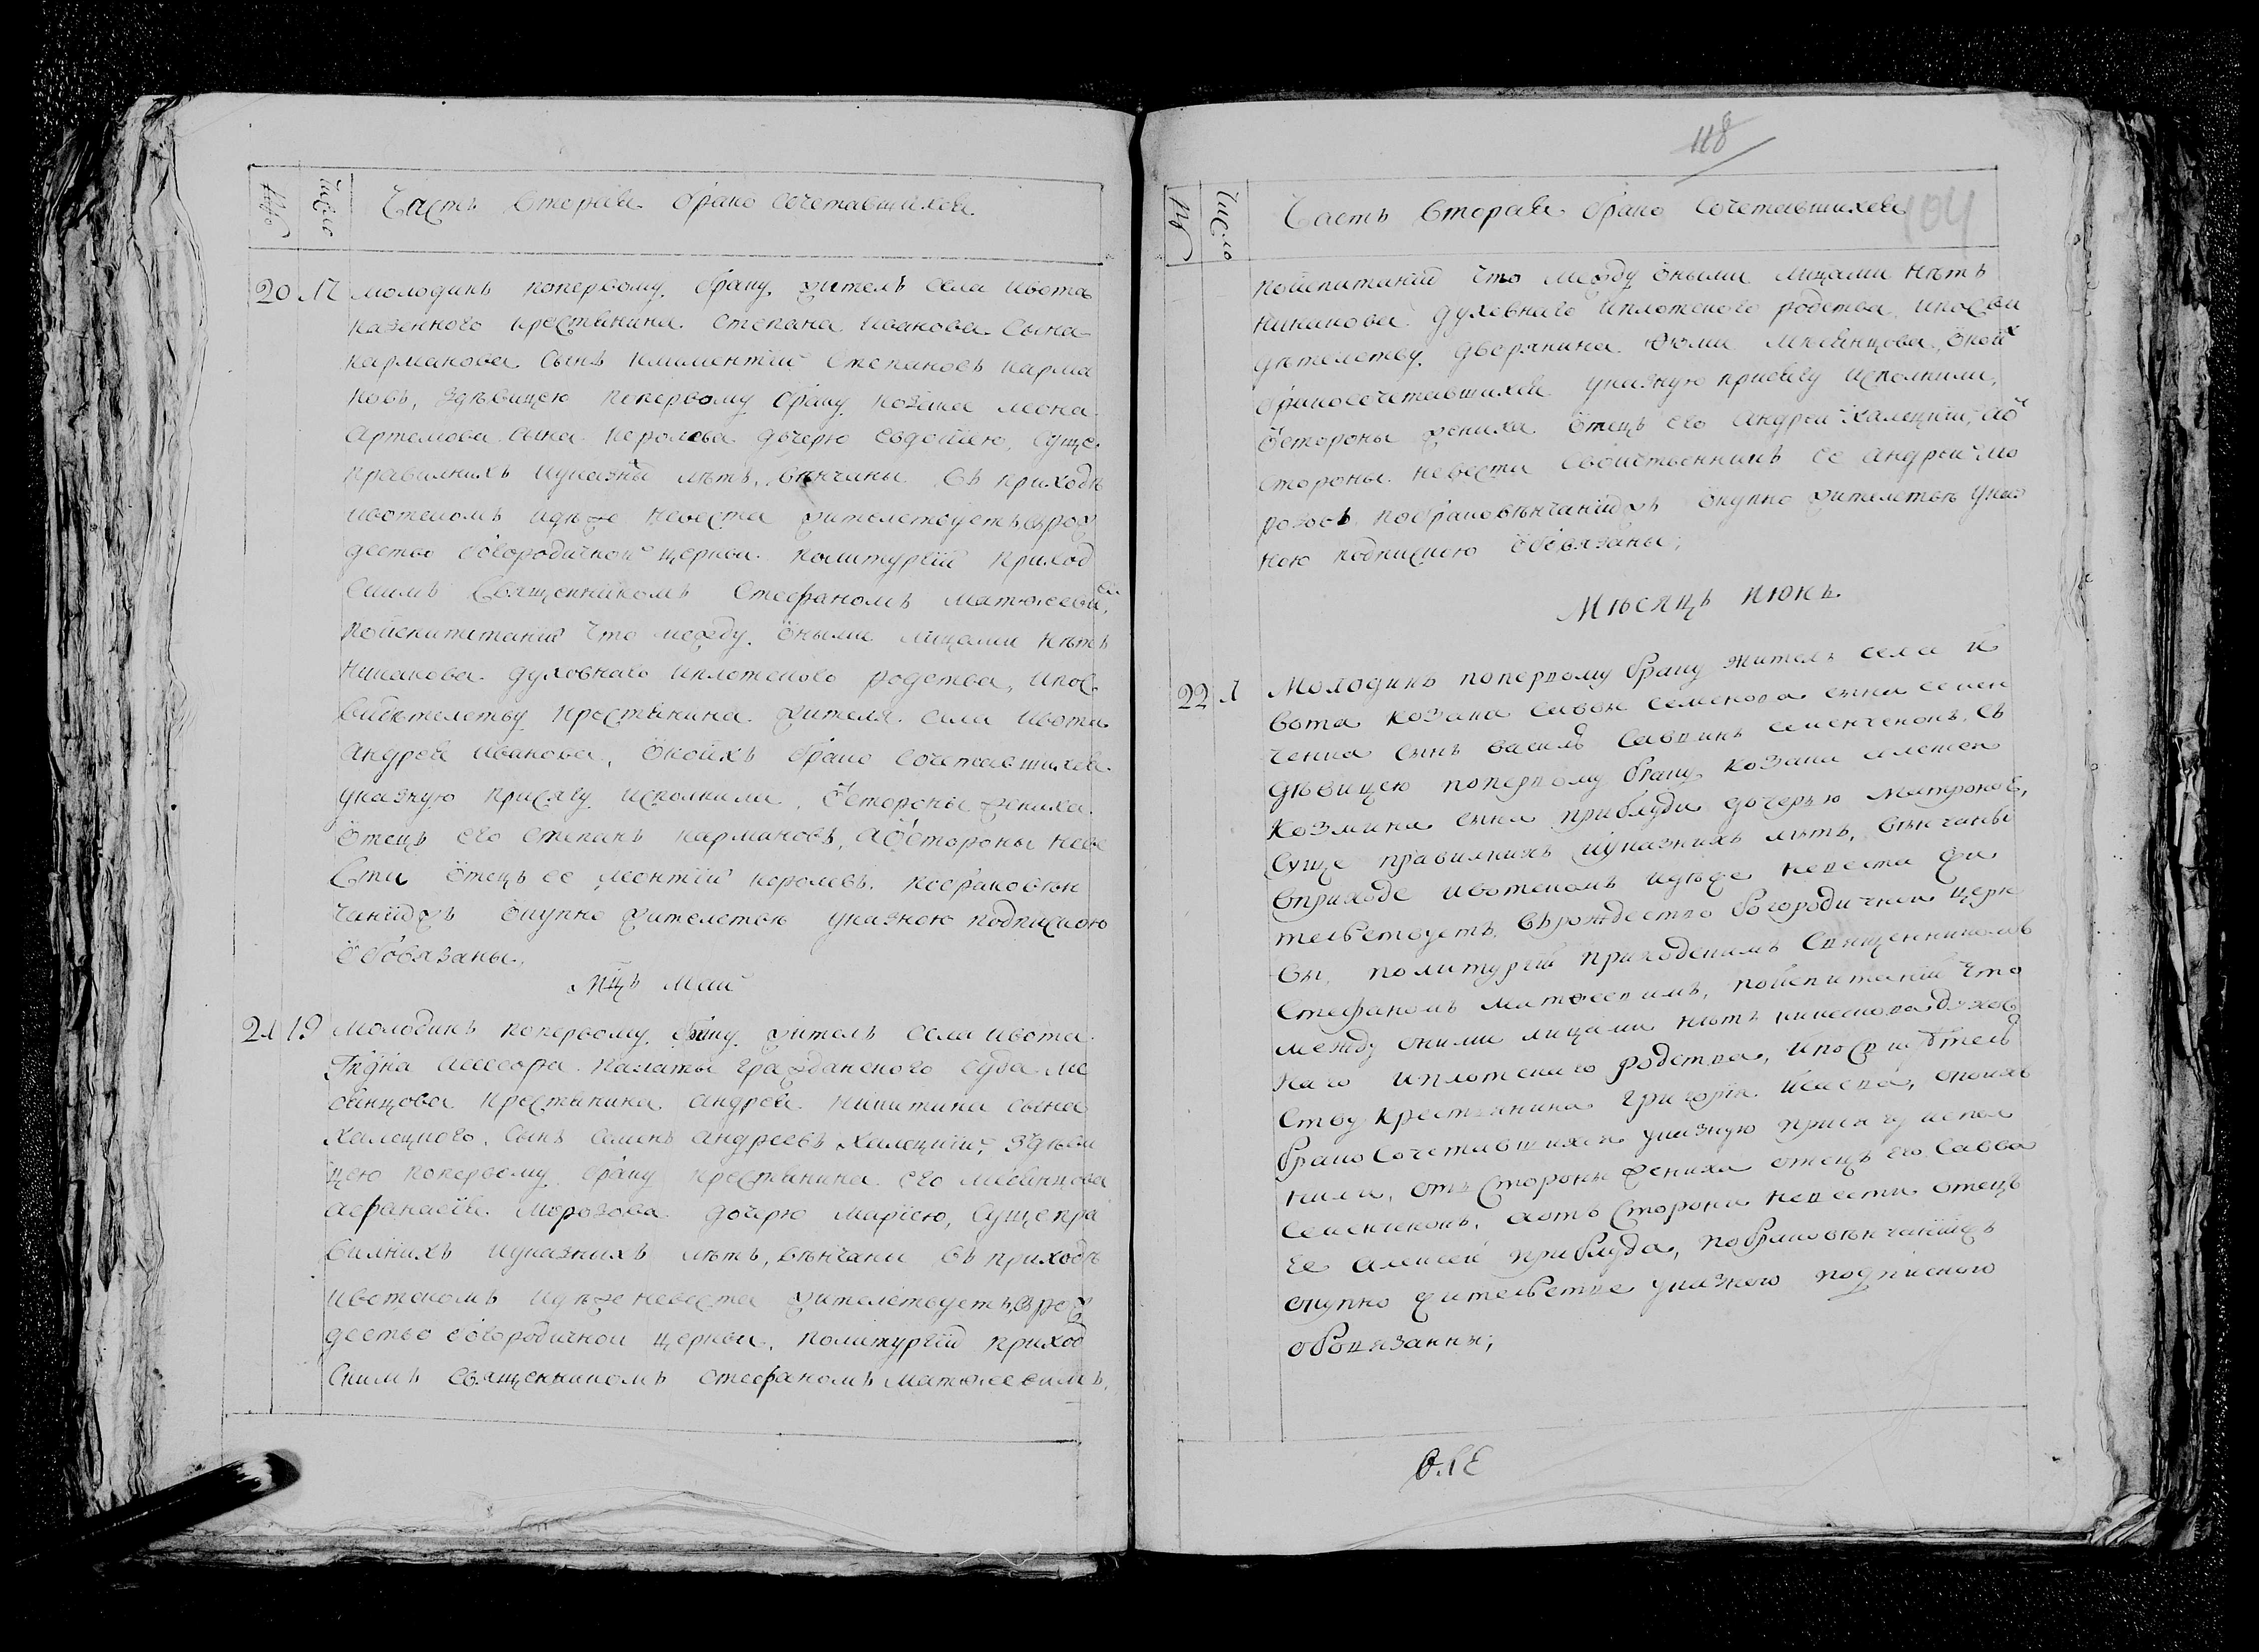 Число
Часть Вторая брако сочетавшихся
20 17 молодикъ попервому браку жителъ села Ивота
казенного крестянина Степана Иванова сына
Карманова сынъ Климентій Степановъ Карма
новъ, здѣвицею попервому браку козака Леона
Артемова сына Королева дочерю Евдокіею, суще
правилнихъ иуказнихъ лѣтъ, вѣнчаны въ приходѣ
Ивотскомъ идѣже невеста жителствуетъ врож
дество богородичной церкви политургіи приход
скимъ священникомъ Стефаномъ
поиспитаніи что между оными лицами нѣтъ
никакова духовнаго иплотскаго родства, ипос
видѣтелству крестянина жителя села Ивота
Андрея Иванова, окоихъ брако сочетавшихся
указную присягу исполнили, ѿстороны жениха
отецъ его Степанъ Кармановъ, аѿстороны неве
сти отецъ ее Леонтій Королевъ. побраковѣн
чаніижъ окупно жителствѣ указною подпискою
обовязаны,
Мцъ Май
21 19 Молодикъ попервому браку жителъ села Ивота
Гдна асесора палаты гражданского суда
крестянина Андрея Никитина сына
Халецкого, сынъ Семенъ Андреевъ Халецкій, здѣви
цею попервому браку крестянина его
Афанасія Морозова дочерю Маріею, суще пра
вилнихъ иуказнихъ лѣтъ, вѣнчани въ приходѣ
Ивотскомъ идѣже невеста жителствуетъ, врож
дество богородичной церкви, политургіи приход
скимъ священникомъ Стефаномъ
118
104
№ Число
Часть Вторая брако сочетавшихся
поиспитаніи что между оными лицами нѣтъ
никакова духовнаго иплотского родства, ипосви
дѣтелству дворянина окоихъ
бракосочетавшихся указную присягу исполнили,
ѿстороны жениха отецъ его Андрей Халецкій, аѿ
стороны невести свойственникъ ее Андрей Мо
розовъ, побраковѣнчаніижъ окупно жителствѣ указ
ною подпискою обовязаны;
Мѣсяцъ июнь
22 Молодикъ попервому браку жителъ села И
вота козака Савы Семенова сына Семен
ченка сынъ Василъ Савинъ Семенченокъ, съ
дѣвицею попервому браку козака Алексея
Козмина сына Приблуди дочерью Матроною,
суще правилнихъ иуказнихъ лѣтъ, вѣнчаны
вприходе Ивотскомъ идѣже невеста жи
телствуетъ, въ рождество богородичной церк
вы, политургіи приходскимъ священникомъ
Стефаномъ поиспитаніи что
между оними лицами нѣтъ никакова духов
наго иплотскаго родства, ипосвидѣтель
ству крестьянина Григорія окоихъ
брако сочетавшихся указную присягу испол
нили, отъ стороны жениха отецъ его Савва
Семенченокъ, аотъ стороны невести отецъ
ее Алексей Приблуда, побраковѣнчаніижъ
окупно жительстве указною подпискою
обовязанны;